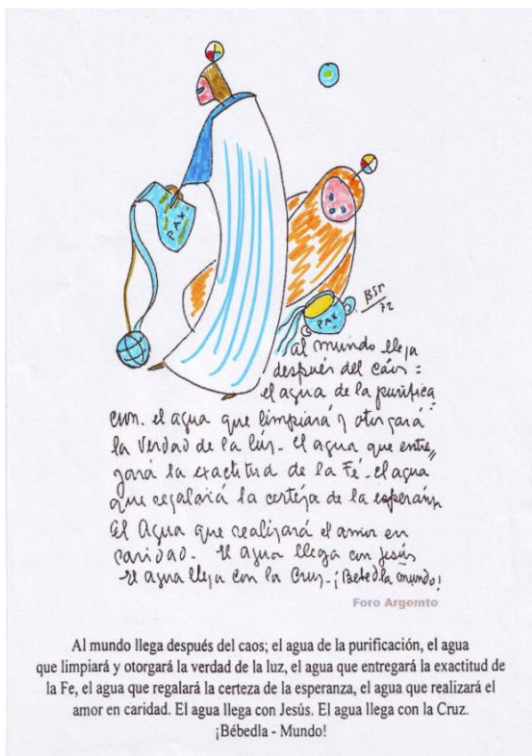 PAX
PAX
BSP
72
Al mundo llega
después del cáos:
el agua de la purifica
ción. el agua que limpiará y otorgará
la verdad de la luz. el agua que entre
gará la exactitud de la Fé. el agua
que regalará la certeza de la esperanza
El Agua que realizará el amor en
caridad. El agua llega con Jesús
El agua llega con la Cruz. ¡Bebedla mundo!
Foro Argemto
Al mundo llega después del caos; el agua de la purificación, el agua
que limpiará y otorgará la verdad de la luz, el agua que entregará la exactitud de
la Fe, el agua que regalará la certeza de la esperanza, el agua que realizará el
amor en caridad. El agua llega con Jesús. El agua llega con la Cruz.
¡Bébedla - Mundo!